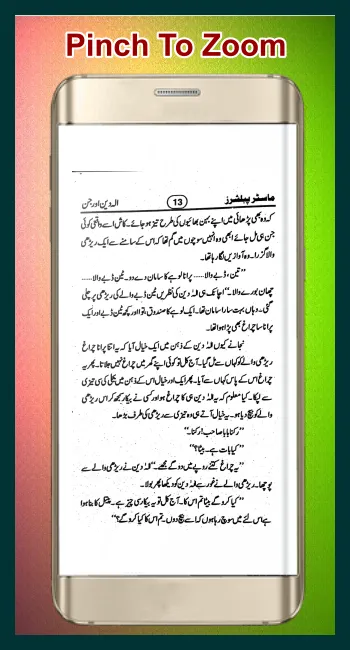 Pinch To Zoom
ماسٹر پبلشرز 13 الہ دین اور جن
کہ وہ بھی پڑھائی میں اپنے بہن بھائیوں کی طرح تیز ہو جائے۔ کاش اسے واقعی کوئی
جن ہی مل جائے ابھی وہ انہیں سوچوں میں گم تھا کہ اس کے سامنے سے ایک ریڑھی
والا گزرا۔ وہ آوازیں لگا رہا تھا۔
"تین، ڈبے والا..... پرانا لوہے کا سامان دے دو۔ ٹین ڈبے والا.....
چھان بورے والا۔" اچانک ہی الہ دین کی نظریں ٹین ڈبے والے کی ریڑھی پر چلی
گئی۔ وہاں بہت سارا سامان تھا۔ ایک لوہے کا صندوق، توا اور کچھ ٹین ڈبے اور ایک
پرانا سا چراغ بھی پڑا ہوا تھا۔
نجانے کیوں الہ دین کے ذہن میں ایک خیال آیا کہ یہ اتنا پرانا چراغ
ریڑھی والے کو کہاں سے مل گیا۔ آج کل تو کوئی اپنے گھر میں چراغ نہیں جلاتا۔ پھر یہ
چراغ اس کے پاس کہاں سے آیا۔ پھر ایک اور خیال اس کے ذہن میں بجلی کی سی تیزی
سے لپکا۔ کیا معلوم کہ یہ الہ دین ہی کا چراغ ہو اور کسی نے بیکار سمجھ کر اس ریڑھی
والے کو بیچ دیا ہو۔ یہ خیال آتے ہی وہ تیزی سے ریڑھی کی طرف بڑھا۔
"رکنا بابا صاحب! رکنا۔"
"کیا بات ہے۔ بیٹا؟"
"یہ چراغ کتنے روپے میں دو گے مجھے۔" الہ دین نے ریڑھی والے سے
پوچھا۔ ریڑھی والے نے غور سے الہ دین کو دیکھا پھر بولا۔
"کیا کرو گے بیٹا تم اس کا۔ آج کل تو یہ بیکار سی چیز ہے۔ پیتل کا بنا ہوا
ہے اس لئے میں سوچ رہا ہوں کہ اسے بیچ دوں۔ تم اس کا کیا کرو گے؟"